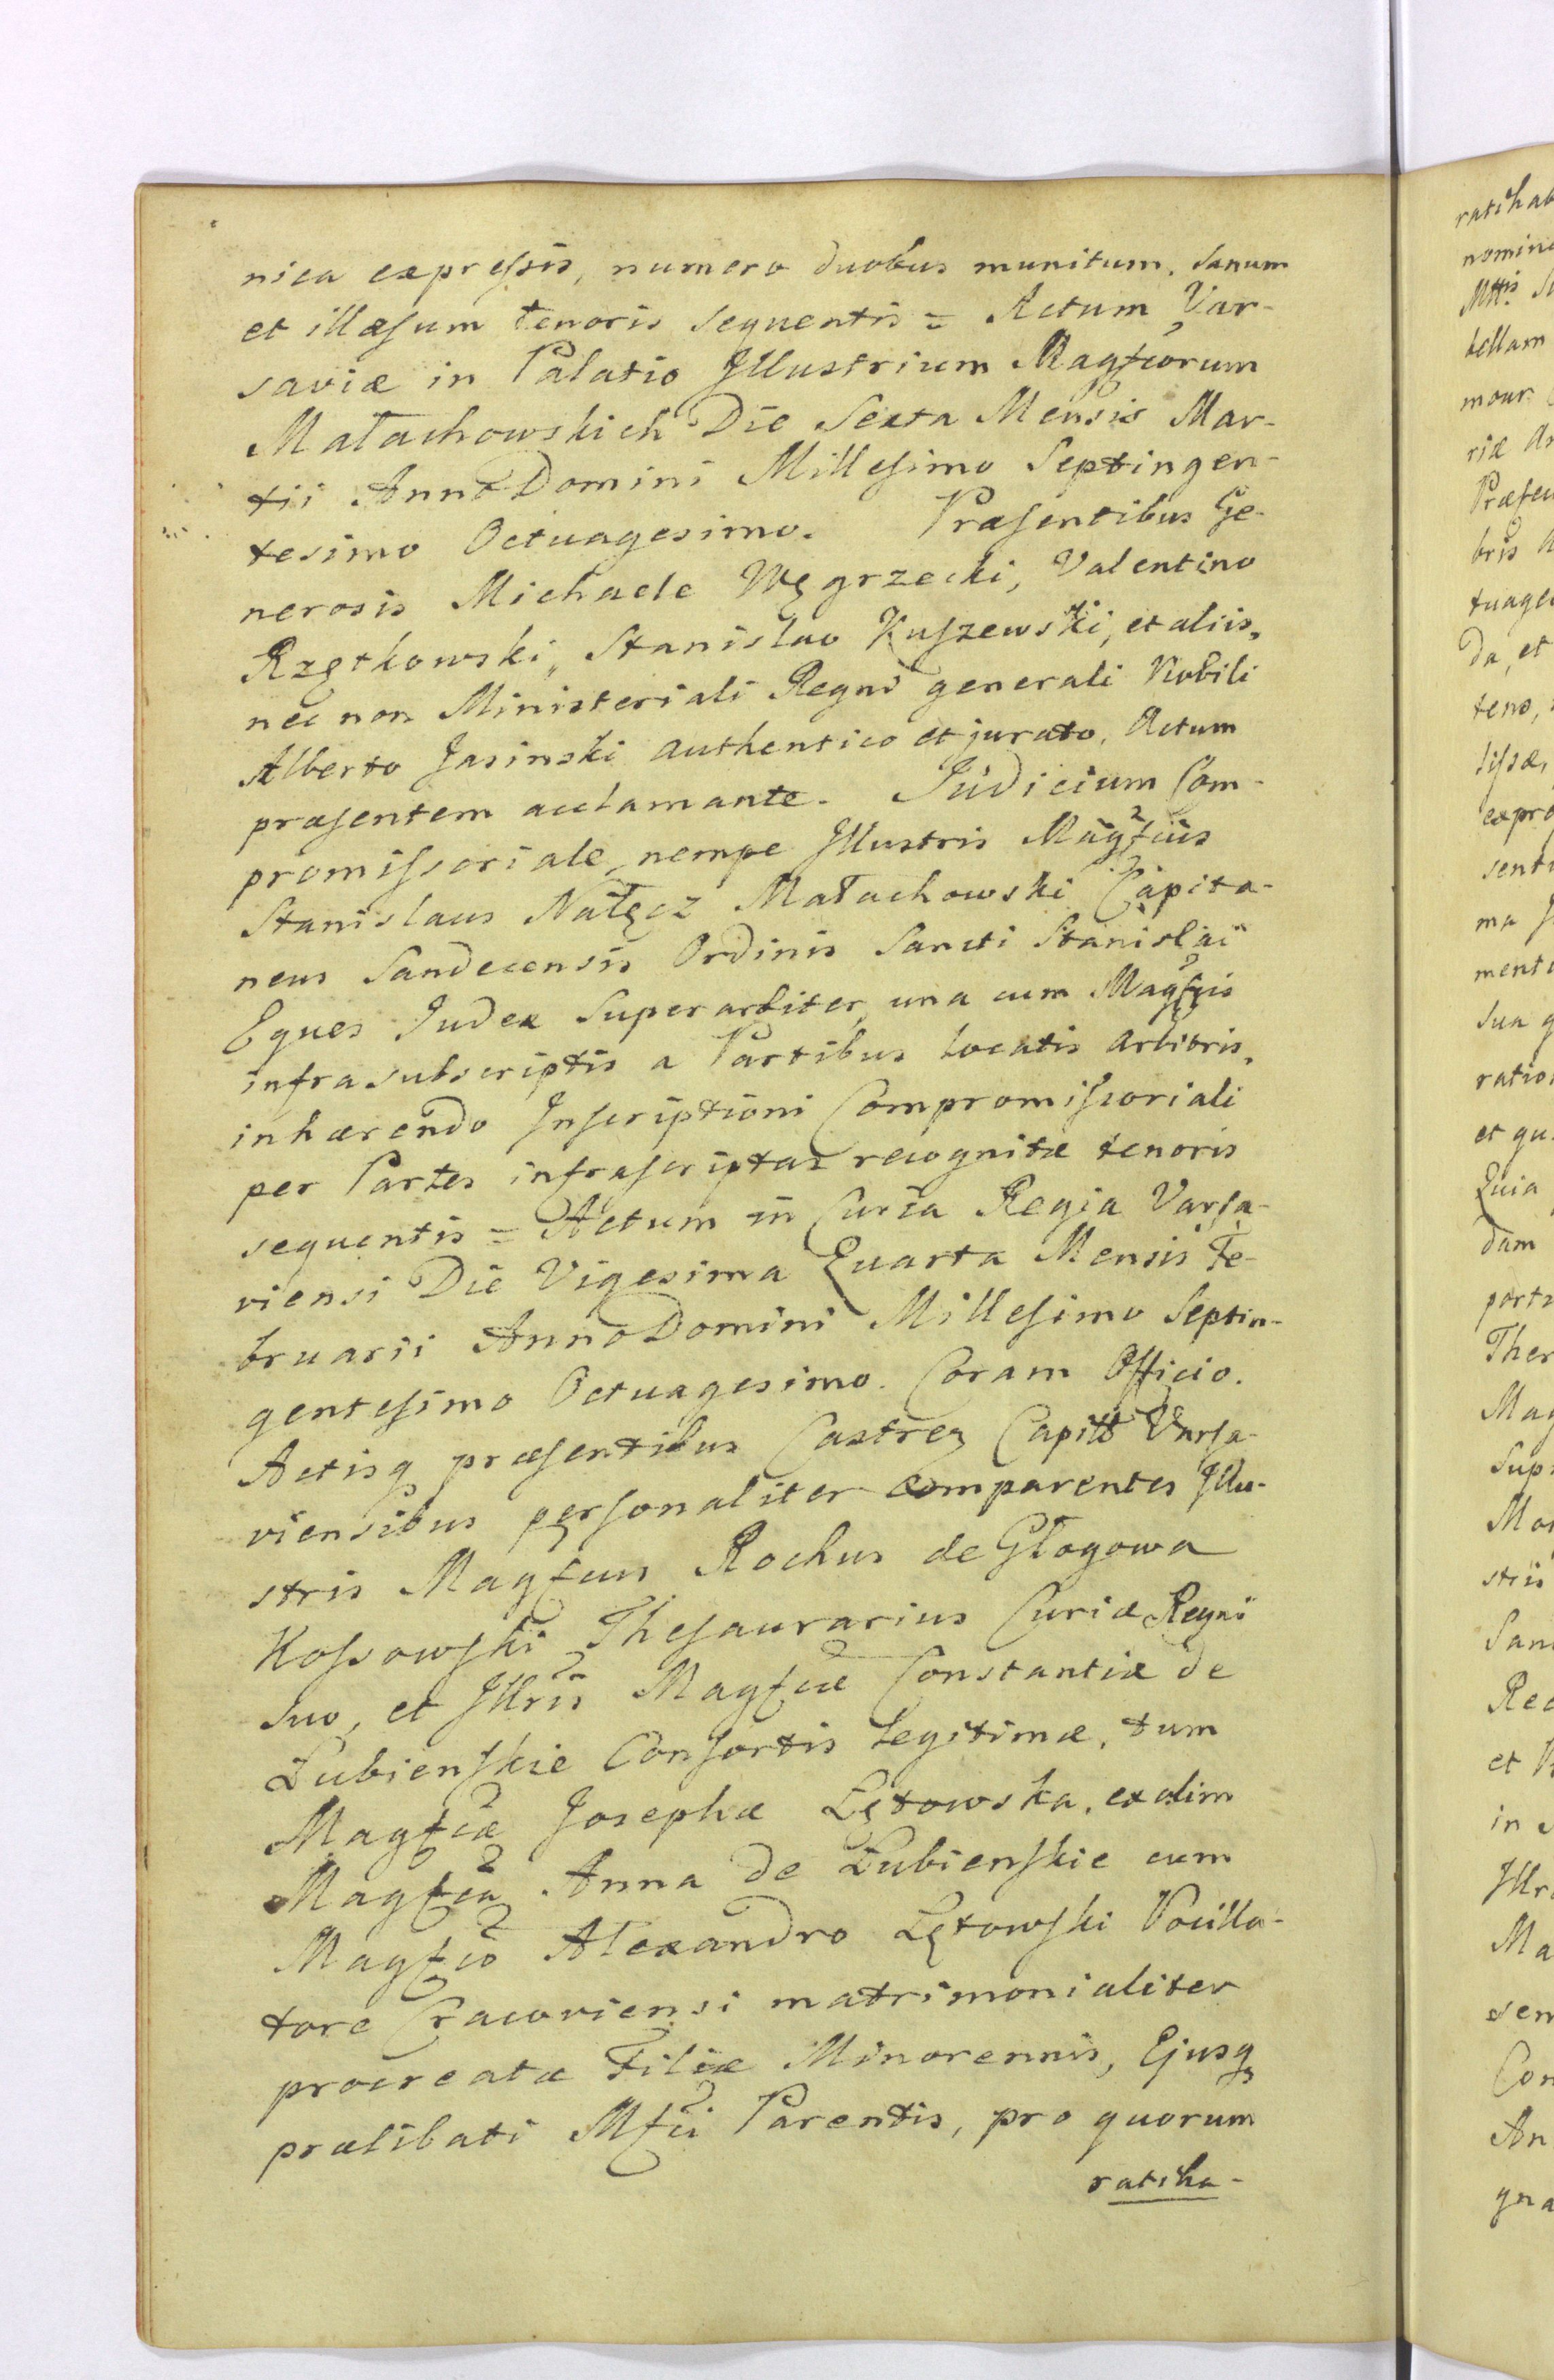 nica expressis, numero duobus munitum, sanum
et illæsum tenoris sequentis = Actum Var-
saviæ in Palatio Illustrium Magfcorum
Małachowskich Die Sexta Mensis Mar-
tii Anno Domini Millesimo Septingen-
tesimo Octuagesimo. Præsentibus Ge-
nerosis Michaele Węgrzecki, Valentino
Rzętkowski, Stanislao Kuszewski, et aliis,
nec non Ministeriali Regni generali Nobili
Alberto Jasinski authentico et jurato, Actum
præsentem acclamante. Judicium Com-
promissoriale, nempe Illustris Magfcus
Stanislaus Nałęcz Małachowski Capita-
neus Sandecensis Ordinis Sancti Stanislai
Eques Judex Superarbiter, una cum Magfcis
infrasubscriptis a Partibus locatis arbitris,
inhærendo Inscriptioni Compromissoriali
per Partes infrascriptas recognitæ tenoris
sequentis = Actum in Curia Regia Varsa-
viensi Die Vigesima Quarta Mensis Fe-
bruarii Anno Domini Millesimo Septin-
gentesimo Octuagesimo. Coram Officio.
Actisq præsentibus Castren Capitt Varsa-
viensibus personaliter comparentes Illu-
stris Magfcus Rochus de Głogowa
Kossowski Thesaurarius Curiæ Regni
suo, et Illris Magfcæ Constantiæ de
Łubienskie Consortis legitimæ, tum
Magfcæ Josephæ Łętowska, ex olim
Magfca Anna de Łubienskie cum
Magfco Alexandro Łętowski Vocilla-
tore Cracoviensi matrimonialiter
procreatæ Filiæ Minorennis, Ejusq
prælibati Mfci Parentis, pro quorum
ratiha-
ratihab
nomine
Mttis
bellam
mour
riæ
Præfe
bris
tuage
da, et
teno,
lissæ,
expre
senti
ma
mento
sua q
ratio
et qu
Quia
dam
porti
Ther
Mag
Sup
Mar
strii
San
Rec
et
in
Illr
Ma
sen
Con
An
gna